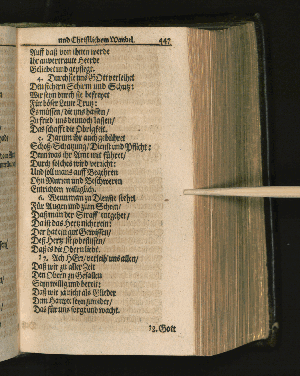 und Christlichem Wandel. 447
Auff daß von ihnen werde
Ihr anvertraute Heerde
Geliebet und gepflegt.
4. Durch sie uns GOtt verleihet
Den sichern Schirm und Schutz:
Wir seyn durch sie befreyet
Für böser Leute Trutz:
Es müssen/ die uns hassen/
Zu fried uns dennoch lassen/
Das schafft die Obrigkeit.
5. Darum ihr auch gebühret
Schoß/Schatzung/Dienst und Pflicht:
Denn was ihr Amt mit führet/
Durch solches wird verricht:
Und soll mans auff Begehren
Den Murren und Beschweren
Entrichten williglich.
6. Wenn man zu Dienste stehet
Für Augen und zum Schein/
Daß man der Straff entgehet/
Da ist das Hertz nicht rein:
Der hat ein gut Gewissen/
Deß Hertz ist so beflissen/
Daß es die Obern liebt.
Ach HErr/ verleih uns allen/
Daß wir zu aller Zeit
Den Obern zu Gefallen
Seyn willig und bereit:
Daß wir ja nicht als Glieder
Dem Haupte seyn zuwider/
Das für uns sorgt und wacht.
Gott